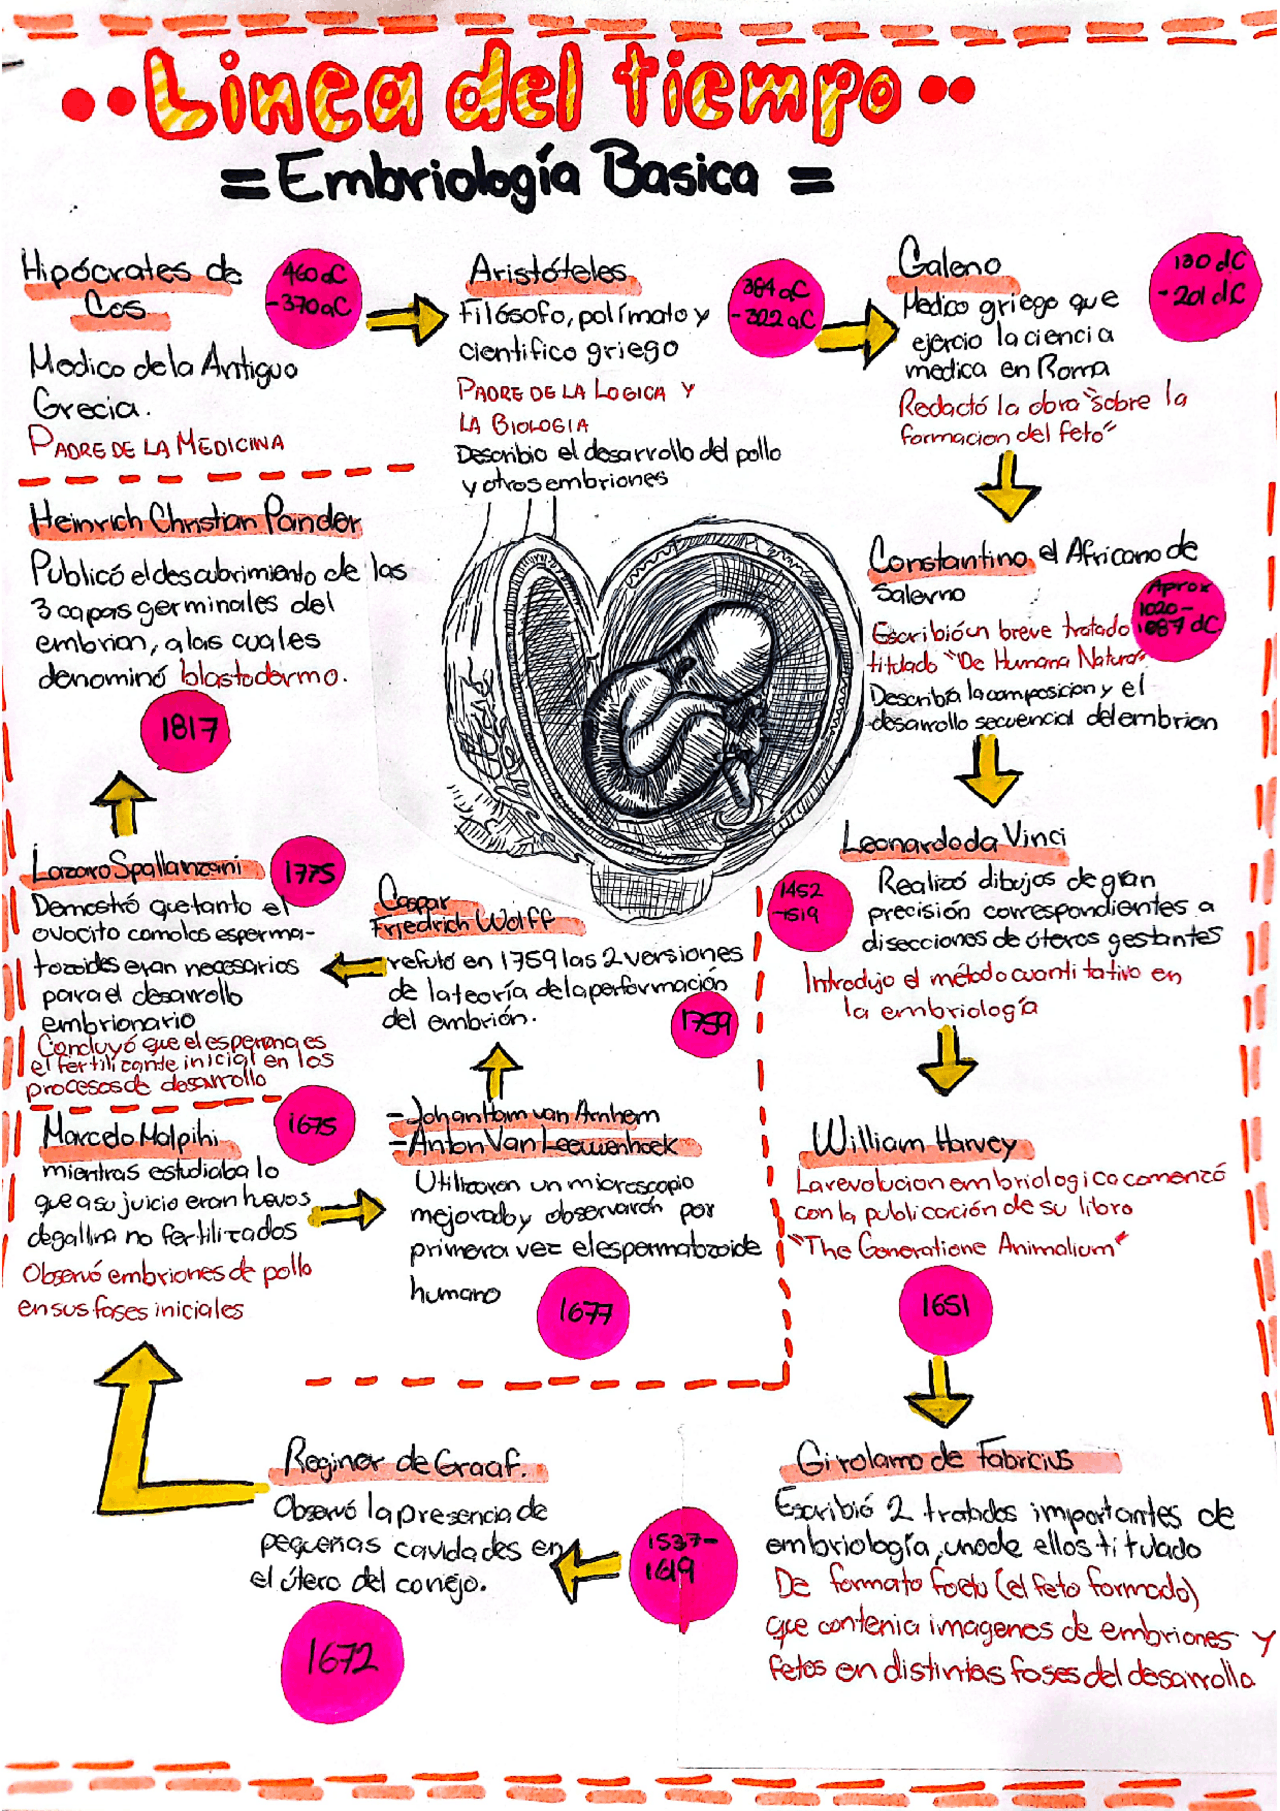 Linea del tiempo
= Embriología Basica =
Hipócrates de
Cos
460 aC
-370 aC
Medico de la Antigua
Grecia.
PADRE DE LA MEDICINA
Aristóteles
384 aC
-322 aC
Filósofo, polímato y
cientifico griego
PADRE DE LA LOGICA Y
LA BIOLOGIA
Describio el desarrollo del pollo
y otros embriones
Galeno
130 dC
-201 dC
Medico griego que
ejercio la ciencia
medica en Roma
Redactó la obra "sobre la
formacion del feto"
Constantino el Africano de
Salerno
Aprox
1020-
1087 dC
Escribió un breve tratado
titulado "De Humana Natura"
Describía la composicion y el
desarrollo secuencial del embrion
Leonardo da Vinci
1452
-1519
Realizó dibujos de gran
precisión correspondientes a
disecciones de úteros gestantes
Introdujo el método cuantitativo en
la embriología
William Harvey
La revolucion embriologica comenzó
con la publicación de su libro
"The Generatione Animalium"
1651
Girolamo de Fabricius
Escribió 2 tratados importantes de
embriología, uno de ellos titulado
De formato foetu (el feto formado)
que contenia imagenes de embriones y
fetos en distintas fases del desarrollo
1537-
1619
Reginer de Graaf.
Observó la presencia de
pequeñas cavidades en
el útero del conejo.
1672
Marcelo Malpihi
1675
mientras estudiaba lo
que a su juicio eran huevos
de gallina no fertilizados
Observó embriones de pollo
en sus fases iniciales
- Johan Ham van Arnhem
- Anton Van Leeuwenhoek
Utilizaron un microscopio
mejorado y observarón por
primera vez el espermatozoide
humano
1677
Caspar
Friedrich Wolff
refutó en 1759 las 2 versiones
de la teoría de la performación
del embrión.
1759
Lazaro Spallanzani
1775
Demostró que tanto el
ovocito como los esperma-
tozoides eran necesarios
para el desarrollo
embrionario
Concluyó que el esperma es
el fertilizante inicial en los
procesos de desarrollo
Heinrich Christian Pander
Publicó el descubrimiento de las
3 capas germinales del
embrion, a las cuales
denominó blastodermo.
1817